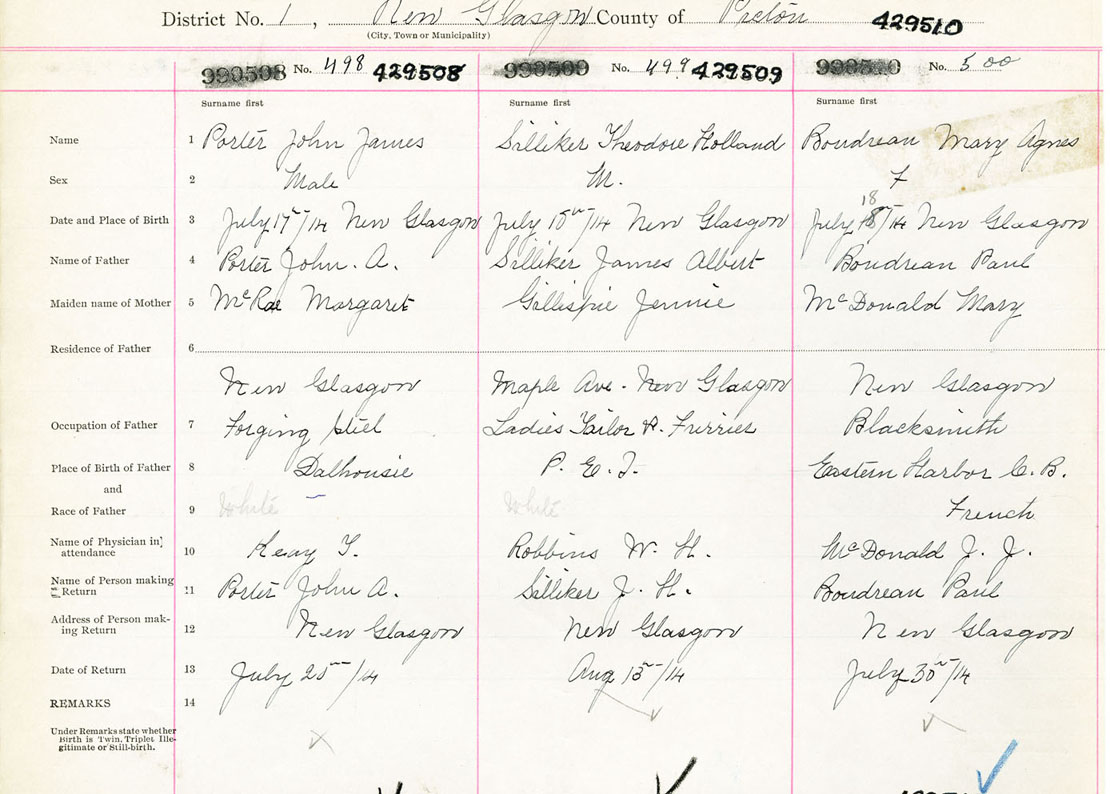 District No. 1, New Glasgow County of Pictou 429510
(City, Town or Municipality)
990508 No. 498 429508 990509 No. 499 429509 990510 No. 500
Surname first Surname first Surname first
Name 1 Porter John James Silliker Theodore Holland Boudreau Mary Agnes
Sex 2 Male M. F
18
Date and Place of Birth 3 July 17"/14 New Glasgow July 15th/14 New Glasgow July 18/14 New Glasgow
Name of Father 4 Porter John. A. Silliker James Albert Boudreau Paul
Maiden name of Mother 5 McRae Margaret Gillispie Jennie McDonald Mary
Residence of Father 6
New Glasgow Maple Ave. New Glasgow New Glasgow
Occupation of Father 7 Forging steel Ladies Tailor & Furrier Blacksmith
Place of Birth of Father 8 Dalhousie P. E. I. Eastern Harbor C. B.
and
Race of Father 9 White White French
Name of Physician in attendance 10 Keay T. Robbins W. H. McDonald J. J.
Name of Person making Return 11 Porter John A. Silliker J. H. Boudreau Paul
Address of Person making Return 12 New Glasgow New Glasgow New Glasgow
Date of Return 13 July 25"/14 Aug 13"/14 July 30"/14
REMARKS 14
Under Remarks state whether
Birth is Twin, Triplet Ille-
gitimate or Still-birth.